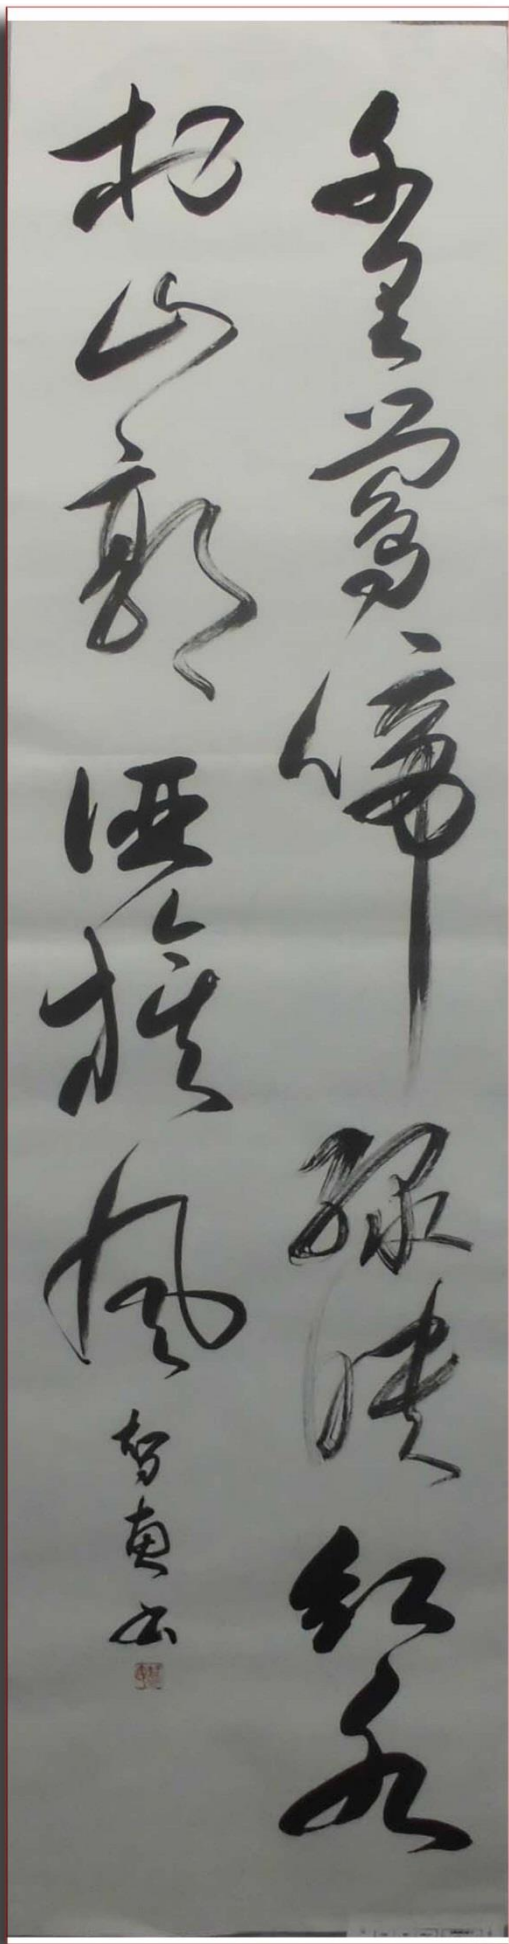 千里鶯啼綠映紅水
村山郭酒旗風